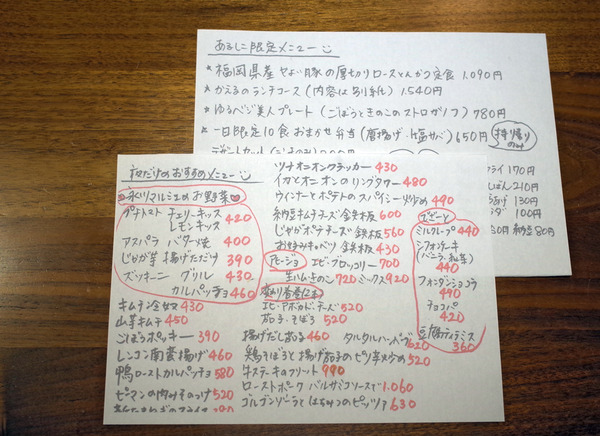 あるしこ限定メニュー
★福岡県産やよい豚の厚切りロースとんかつ定食 1,090円
★かえるのランチコース(内容は別紙) 1,540円
★ゆるベジ美人プレート(ごぼうときのこのストロガノフ) 780円
★一日限定10食 おまかせ弁当(唐揚げ・塩サバ) 650円 持帰りのみ
デザートセット
フライ 170円
210円
130円
100円
納豆 80円
夜だけのおすすめメニュー
永リマルシェのお野菜
プチトマト チェリーキッス 420
レモンキッス
アスパラ バター焼 400
じゃが芋 揚げただけ 390
ズッキーニ グリル 430
カルパッチョ 460
キムチ冷奴 430
山芋キムチ 450
ごぼうポッキー 390
レンコン南蛮揚げ 460
鴨ローストカルパッチョ 580
ピーマンの肉みそのっけ 520
ツナオニオンクラッカー 430
イカとオニオンのリングタワー 480
ウィンナーとポテトのスパイシー炒め 490
納豆キムチチーズ鉄板 600
じゃがポテチーズ鉄板 560
お好みキャベツ鉄板 430
アヒージョ エビ・ブロッコリー 700
生ハムきのこ 720 ミックス 920
変わり春巻(2本)
エビ・アボカドチーズ 520
茄子・そぼろ 520
揚げだし茄子 460 タルタルハンバーグ 620
鶏そぼろと揚げ茄子のピリ辛炒め 520
牛ステーキのフリット 990
ローストポーク バルサミコソースで 1,060
ゴルゴンゾーラとはちみつのピッツァ 630
でざーと
ミルクレープ 440
シフォンケーキ
(バニラ・紅茶)
440
フォンダンショコラ
490
チョコパ
420
豆腐ティラミス
360